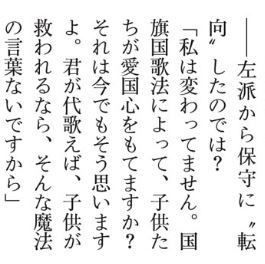 ――左派から保守に〝転
向〟したのでは？
「私は変わってません。国
旗国歌法によって、子供た
ちが愛国心をもてますか？
それは今でもそう思います
よ。君が代歌えば、子供が
救われるなら、そんな魔法
の言葉ないですから」